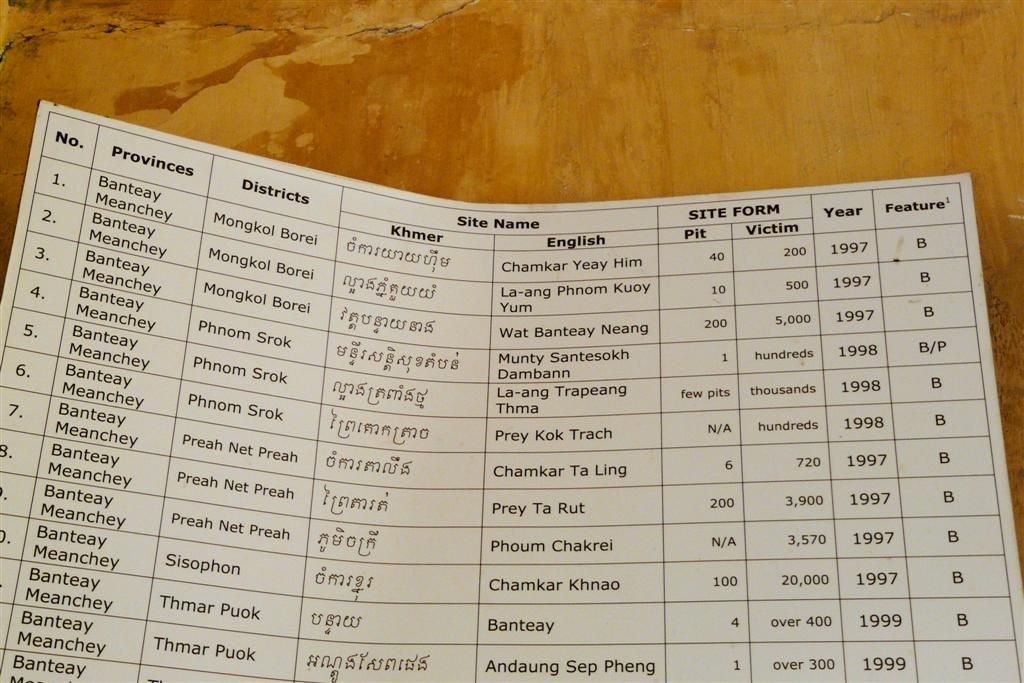 No. Provinces Districts Site Name SITE FORM Year Feature¹
Khmer English Pit Victim
1. Banteay Meanchey Mongkol Borei ចំការយាយហ៊ឹម Chamkar Yeay Him 40 200 1997 B
2. Banteay Meanchey Mongkol Borei ល្អាងភ្នំគួយយំ La-ang Phnom Kuoy Yum 10 500 1997 B
3. Banteay Meanchey Mongkol Borei វត្តបន្ទាយនាង Wat Banteay Neang 200 5,000 1997 B
4. Banteay Meanchey Phnom Srok មន្ទីរសន្តិសុខតំបន់ Munty Santesokh Dambann 1 hundreds 1998 B/P
5. Banteay Meanchey Phnom Srok ល្អាងត្រពាំងថ្ម La-ang Trapeang Thma few pits thousands 1998 B
6. Banteay Meanchey Phnom Srok ព្រៃគោកត្រាច Prey Kok Trach N/A hundreds 1998 B
7. Banteay Meanchey Preah Net Preah ចំការតាលឹង Chamkar Ta Ling 6 720 1997 B
8. Banteay Meanchey Preah Net Preah ព្រៃតារត់ Prey Ta Rut 200 3,900 1997 B
Banteay Meanchey Preah Net Preah ភូមិចក្រី Phoum Chakrei N/A 3,570 1997 B
0. Banteay Meanchey Sisophon ចំការខ្នុរ Chamkar Khnao 100 20,000 1997 B
Banteay Meanchey Thmar Puok បន្ទាយ Banteay 4 over 400 1999 B
Banteay Meanchey Thmar Puok អណ្តូងសែពផេង Andaung Sep Pheng 1 over 300 1999 B
Banteay